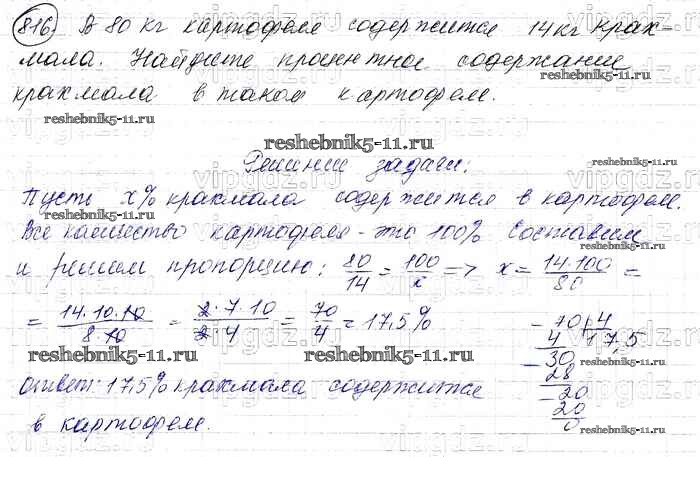 816) В 80 кг картофеля содержится 14 кг крах-
мала. Найдите процентное содержание
крахмала в таком картофеле.
reshebnik5-11.ru
reshebnik5-11.ru
reshebnik5-11.ru
Решение задачи:
Пусть x% крахмала содержится в картофеле.
reshebnik5-11.ru
reshebnik5-11.ru
Все количество картофеля - это 100% Составим
и решим пропорцию: 80/14 = 100/x => x = 14·100/80 =
= 14·10·10/8·10 = 2·7·10/2·4 = 70/4 = 17,5%
70 | 4
4 17,5
30
28
20
20
0
reshebnik5-11.ru
reshebnik5-11.ru
reshebnik5-11.ru
Ответ: 17,5% крахмала содержится
в картофеле.
reshebnik5-11.ru
vipgdz.ru